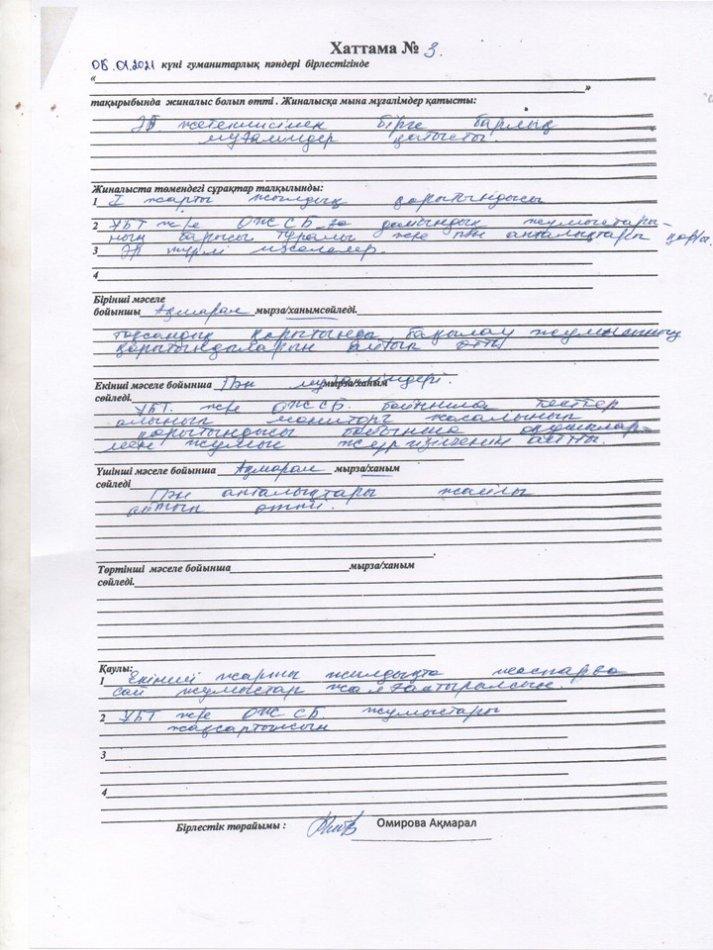 Хаттама № 3.
08.01.2021 күні гуманитарлық пәндері бірлестігінде
«
»
тақырыбында жиналыс болып өтті. Жиналысқа мына мұғалімдер қатысты:
ӘБ жетекшісімен бірге барлық
мұғалімдер қатысты.
Жиналыста төмендегі сұрақтар талқылынды:
1 I жарты жылдық қорытындысы
2 ҰБТ және ОЖСБ-ға дайындық жұмыстары-
ның барысы туралы және пән апталықтары
3 Әр түрлі мәселелер.
4
Бірінші мәселе
бойыншы Ақмарал мырза/ханымсөйледі.
тоқсандық қорытынды бақылау жұмысының
қорытындыларын айтып өтті
Екінші мәселе бойынша Пән мұғалімдері. мырза/ханым
сөйледі.
ҰБТ және ОЖСБ бойынша тесттер
алынып мониторг жасалынып
қорытындысы бойынша оқушылар-
мен жұмыс жүргізілгенін айтты.
Үшінші мәселе бойынша Ақмарал мырза/ханым
сөйледі
Пән апталықтары жайлы
айтып өтті.
Төртінші мәселе бойынша мырза/ханым
сөйледі.
Қаулы:
1 Екінші жарты жылдықта жоспарға
сай жұмыстар жалғастыралсын.
2 ҰБТ және ОЖСБ жұмыстары
жақсартылсын
3
4
Бірлестік төрайымы : Омирова Ақмарал